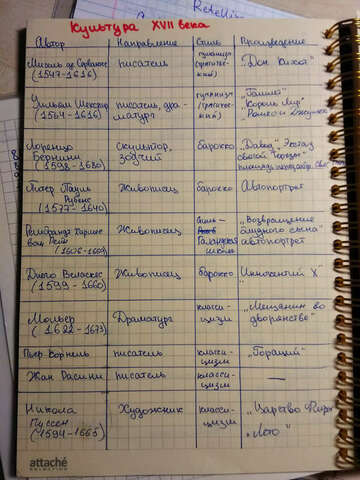 Retelli
Культура XVII века
Автор Направление Стиль Произведение
Мигель де Сервантес писатель гуманизм "Дон Кихот"
(1547-1616)
Уильям Шекспир писатель, дра- гуманизм "Гамлет"
(1564-1616) матург "Король Лир"
Ромео и Джульета
Лоренцо скульптор, барокко "Давид", Экстаз
Бернини зодчий святой Терезы
(1598-1680)
Питер Пауль Живописец барокко Автопортрет
Рубенс
(1577-1640)
Рембрандт Харменс Живописец стиль- "Возвращение
ван Рейн Голандская блудного сына"
(1606-1669) школа автопортрет
Диего Веласкес Живописец барокко Иннокентий X
(1599-1660)
Мольер Драматург класси- "Мещанин во
(1622-1673) цизм дворянстве"
Пьер Корнель писатель класси- "Гораций"
цизм
Жан Расини писатель класси- —
цизм
Никола Художник класси- "Царство Флоры"
Пуссен цизм
(1594-1665)
attaché